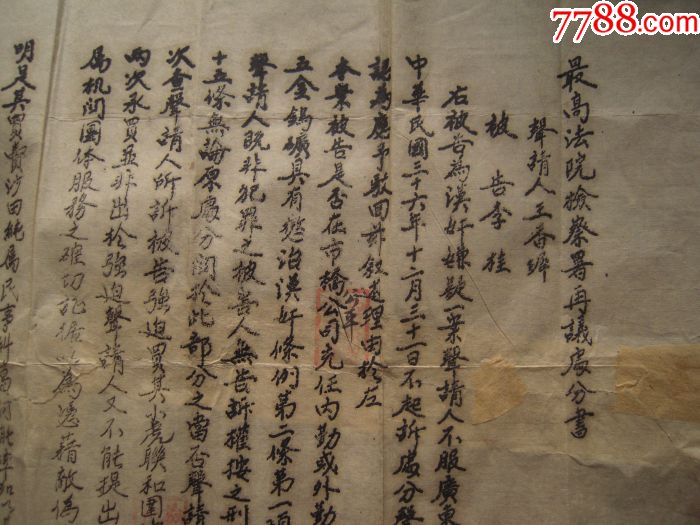 7788.com
最高法院檢察署再議處分書
聲請人王香
被告李桂
右被告為漢奸嫌疑一案聲請人不服廣東
中華民國三十六年十二月三十一日不起訴處分聲
認為應予駁回茲敘述理由於左
本案被告是否在市橋公司充任內勤或外勤
五金鎢礦具有懲治漢奸條例第二條第一項
聲請人既非犯罪之被害人無告訴權按之刑
十五條無論原處分關於此部分之當否聲請
次查聲請人所訴被告強迫買其小虎聯和圍
兩次承買並非出於強迫聲請人又不能提出
属机関團体服務之確切証據以為憑藉敵偽
明是其買賣沙田純属民事